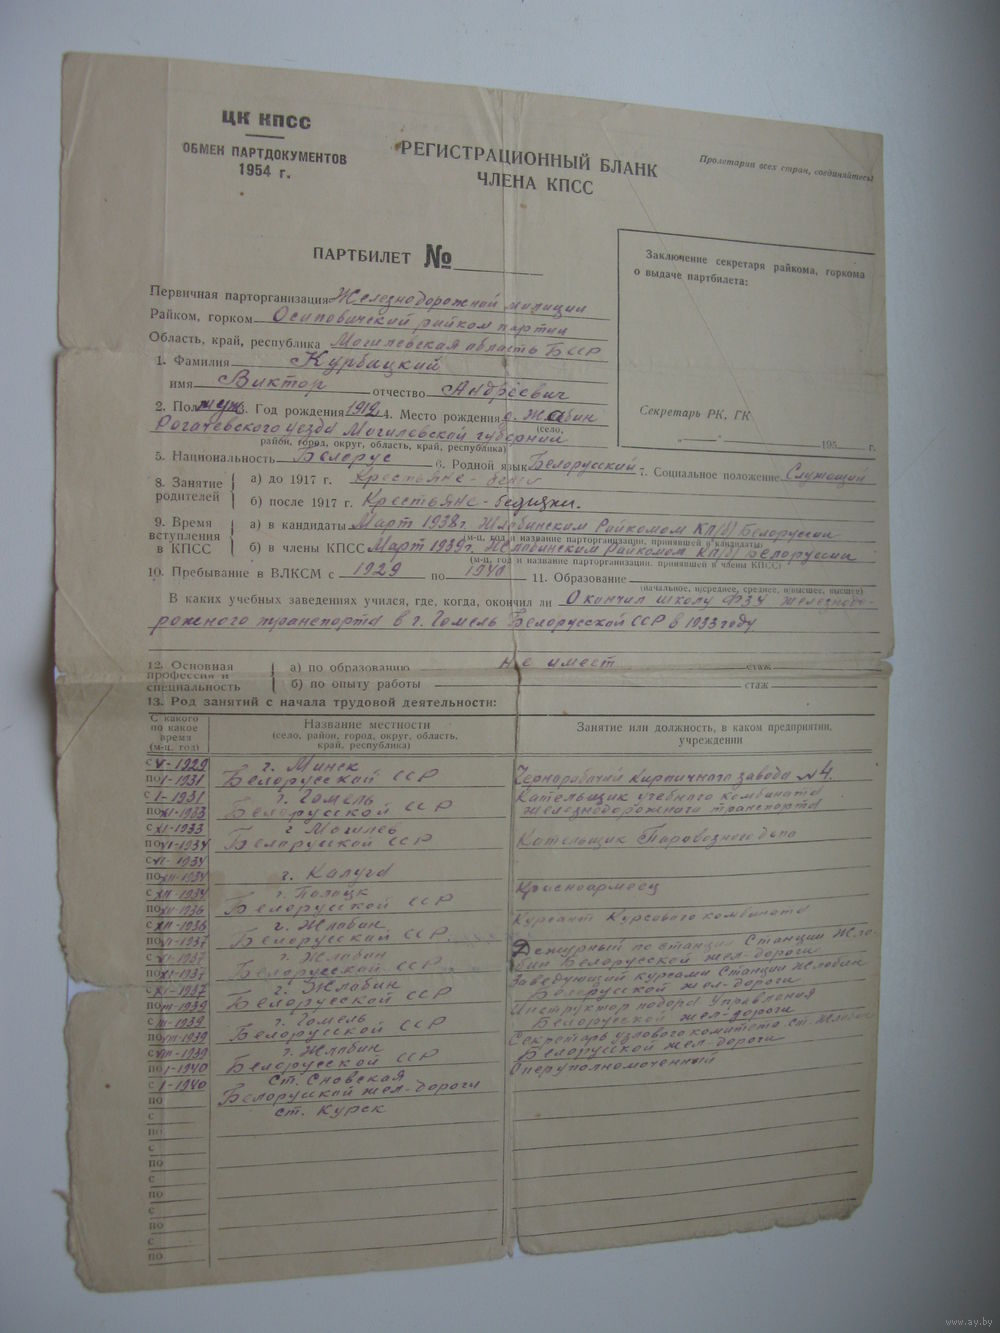 ЦК КПСС
ОБМЕН ПАРТДОКУМЕНТОВ
1954 г.
РЕГИСТРАЦИОННЫЙ БЛАНК
ЧЛЕНА КПСС
Пролетарии всех стран, соединяйтесь!
ПАРТБИЛЕТ №
Заключение секретаря райкома, горкома
о выдаче партбилета:
Секретарь РК, ГК
„ “ 195 г.
Первичная парторганизация Железнодорожной милиции
Райком, горком Осиповичский райком партии
Область, край, республика Могилевская область БССР
1. Фамилия Курбацкий
имя Виктор отчество Андреевич
2. Пол муж 3. Год рождения 1912 4. Место рождения д. Жлобин
(село,
Рогачевского уезда Могилевской губернии
район, город, округ, область, край, республика)
5. Национальность Белорус 6. Родной язык Белорусский 7. Социальное положение Служащий
8. Занятие родителей а) до 1917 г. Крестьяне-
б) после 1917 г. Крестьяне-бедняки.
9. Время вступления в КПСС а) в кандидаты Март 1938г. Жлобинским Райкомом КП(б) Белоруссии
(м-ц, год и название парторганизации, принявшей в кандидаты)
б) в члены КПСС Март 1939г. Жлобинским Райкомом КП(б) Белоруссии
(м-ц, год и название парторганизации, принявшей в члены КПСС)
10. Пребывание в ВЛКСМ с 1929 по 1940 11. Образование
(начальное, н/среднее, среднее, н/высшее, высшее)
В каких учебных заведениях учился, где, когда, окончил ли Окончил школу ФЗУ железнодо-
рожного транспорта в г. Гомель Белорусской ССР в 1933 году
12. Основная профессия и специальность а) по образованию не имеет стаж
б) по опыту работы стаж
13. Род занятий с начала трудовой деятельности:
С какого по какое время (м-ц, год)
Название местности
(село, район, город, округ, область, край, республика)
Занятие или должность, в каком предприятии, учреждении
с V-1929 г. Минск
по I-1931 Белорусской ССР Чернорабочий Кирпичного завода №4.
с I-1931 г. Гомель Котельщик учебного комбината
по XI-1933 Белорусской ССР железнодорожного транспорта
с XI-1933 г. Могилев
по VI-1934 Белорусской ССР Котельщик Паровозного депо
с VI-1934
по XII-1934 г. Калуга
с XII-1934 г. Полоцк Красноармеец
по XII-1936 Белорусской ССР
с XII-1936 г. Жлобин Курсант Курсового комбината
по VI-1937 Белорусской ССР
с VI-1937 г. Жлобин Дежурный по станции Станции Жло-
по XI-1937 Белорусской ССР бин Белорусской жел-дороги
с XI-1937 г. Жлобин Заведующий курсами Станции Жлобин
по III-1939 Белорусской ССР Белорусской жел-дороги
с III-1939 г. Гомель Инструктор Управления
по VIII-1939 Белорусской ССР Белорусской жел-дороги
с VIII-1939 г. Жлобин Секретарь узлового комитета ст. Жлобин
по I-1940 Белорусской ССР Белорусской жел-дороги
с I-1940 ст. Сновская Оперуполномоченный
по Белорусской жел-дороги
с ст. Курск
по
с
по
с
по
с
по
с
по
www.ay.by